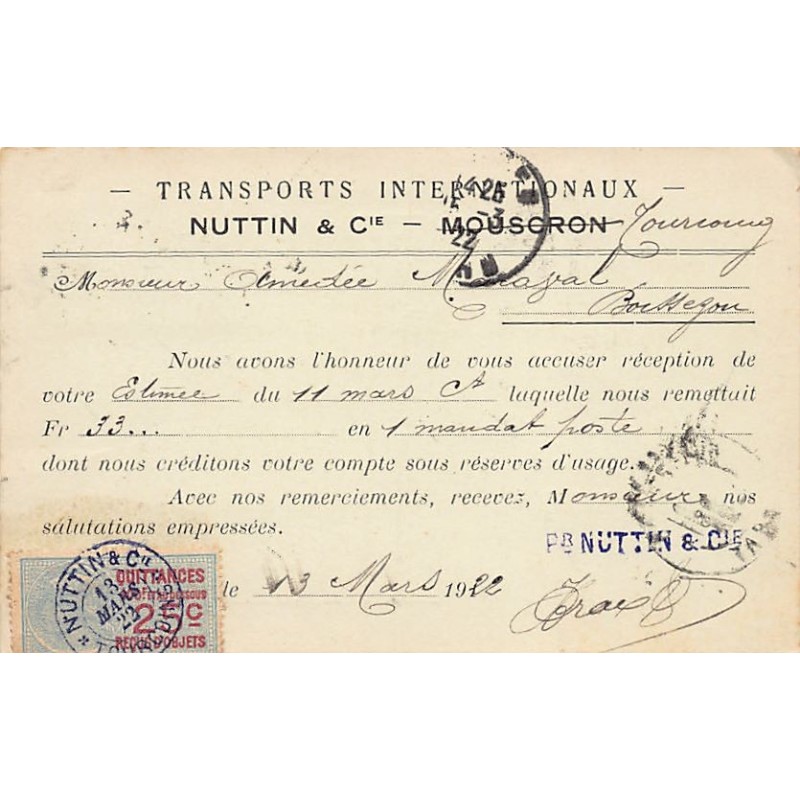 — TRANSPORTS INTERNATIONAUX —
NUTTIN & CIE — MOUSCRON Tourcoing
Monsieur Amédée Maraval
Boissezon
Nous avons l'honneur de vous accuser réception de
votre Estimée du 11 mars Ct laquelle nous remettait
Fr 33... en 1 mandat poste
dont nous créditons votre compte sous réserves d'usage.
Avec nos remerciements, recevez, Monsieur nos
salutations empressées.
PR NUTTIN & CIE
le 13 Mars 1922
NUTTIN & Cie
13 MARS 22
QUITTANCES
25c
REÇUS D'OBJETS